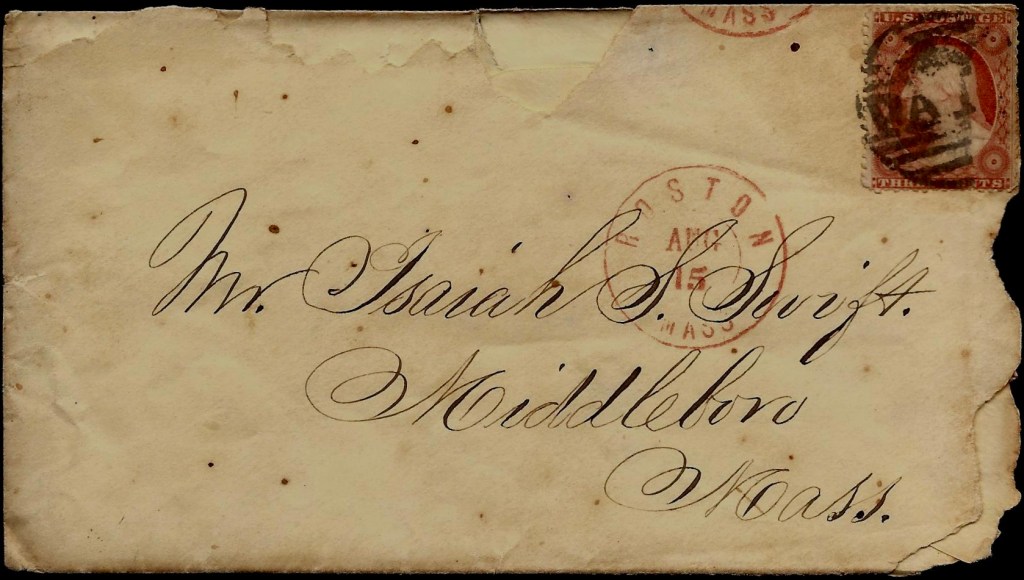 MASS
U.S. POSTAGE
PAI
THREE CENTS
BOSTON
AUG
15
MASS
Mr. Isaiah S. Swift.
Middleboro
Mass.